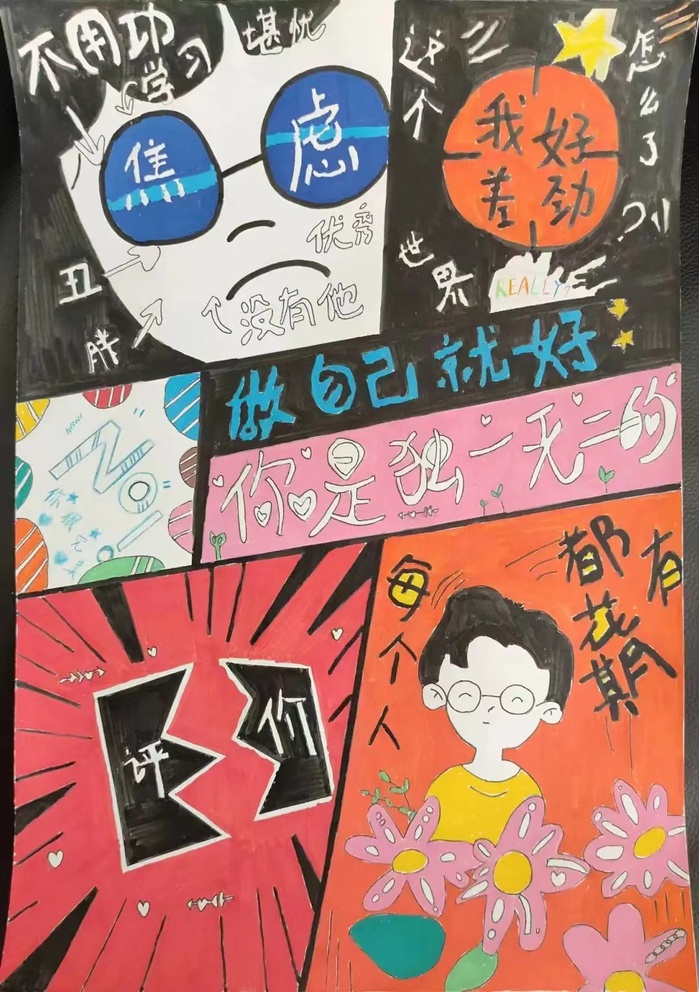 不用功
学习
堪忧
焦虑
丑
胖
没有他
优秀
这个
世界
怎么了
我好
差劲
REALLY?
做自己就好
NO!
你是独一无二的
评价
每个人
都有
花期